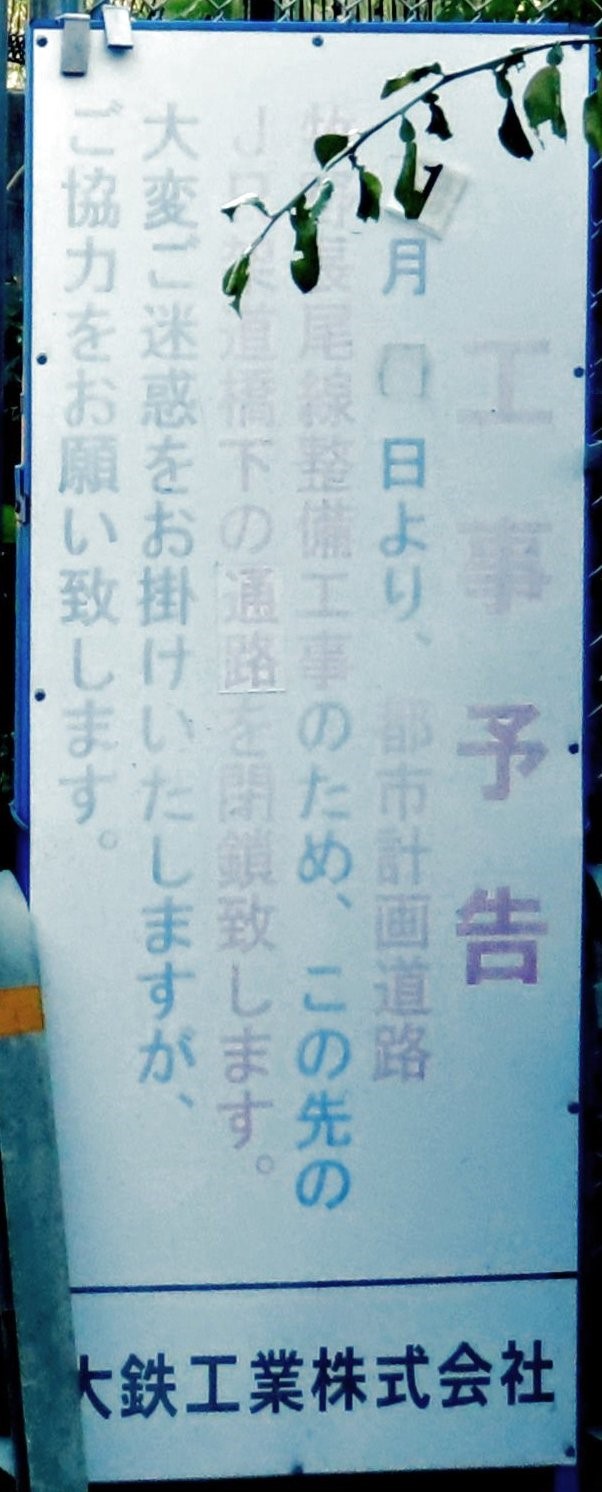 工事予告
月 日より、 都市計画道路
牧 長尾線整備工事のため、この先の
JR 道橋下の通路を閉鎖致します。
大変ご迷惑をお掛けいたしますが、
ご協力をお願い致します。
大鉄工業株式会社